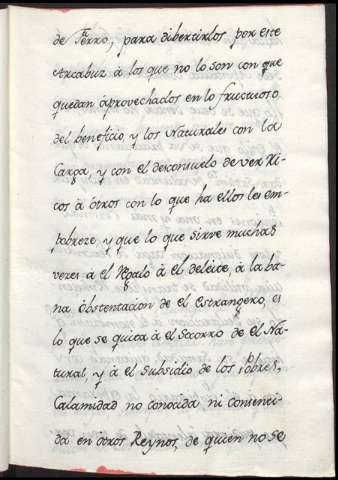 de Fierro, para dibertirlos por este
Arcabuz à los que no lo son con que
quedan àprovechados en lo fructuoso
del beneficio, y los Naturales con la
Carga, y con el desconsuelo de ver Ri-
cos à òtros con lo que ha ellos les em-
pobreze, y que lo que sirve muchas
veces à el Regalo à él deleite, à la ba-
na òbstentacion de el Estrangero, es
lo que se quita à el Socorro de el Na-
tural, y à el subsidio de los pobres,
Calamidad no conocida ni consenti-
da en òtros Reynos, de quien no se